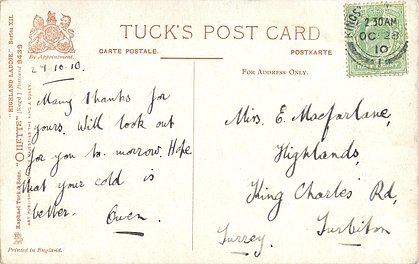 TUCK'S POST CARD
CARTE POSTALE.
POSTKARTE
By Appointment.
FOR ADDRESS ONLY.
"HIGHLAND LADDIE." Series XII.
"OILETTE" [Regd.] Postcard 9439
Raphael Tuck & Sons'
Printed in England.
2 30AM
OC 28
10
Many thanks for
yours. Will look out
for you to-morrow. Hope
that your cold is
better. Owen.
Miss. E. Macfarlane,
Highlands,
King Charles' Rd,
Surbiton
Surrey.